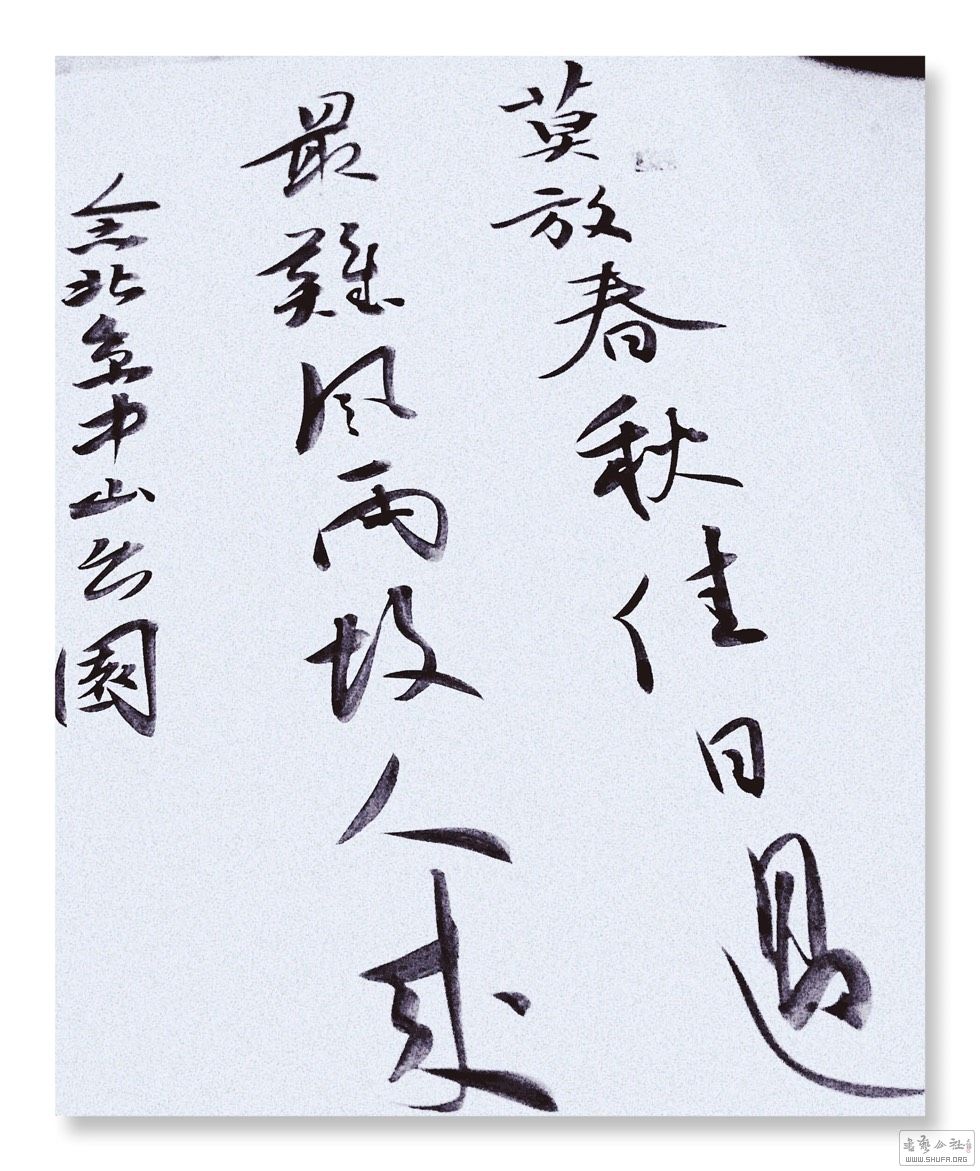 莫放春秋佳日過
最難風雨故人來
念北京中山公園
書藝公社
WWW.SHUFA.ORG